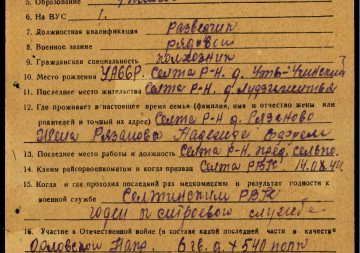 5. Образование
6. На ВУС 1.
7. Должностная квалификация разведчик
8. Военное звание рядовой
9. Гражданская специальность колхозник
10. Место рождения УАССР. Селта Р-Н. д. Уть-
11. Последнее место жительства Селта Р-Н. д.
12. Где проживает в настоящее время семья (фамилия, имя и отчество жены или
родителей и точный их адрес) Селта Р-Н д. Рязаново
Жена Рязанова Надежда
13. Последнее место работы и должность Селта Р-Н. пред. сельпо.
14. Каким райгорвоенкоматом и когда призван Селта РВК. 14.0
15. Когда и где проходил последний раз медкомиссию и результат годности к
военной службе Селтинский РВК
годен к строевой службе
16. Участие в Отечественной войне (в составе какой последней части и в качестве
Орловской напр. 6 гв. д. 540 полк